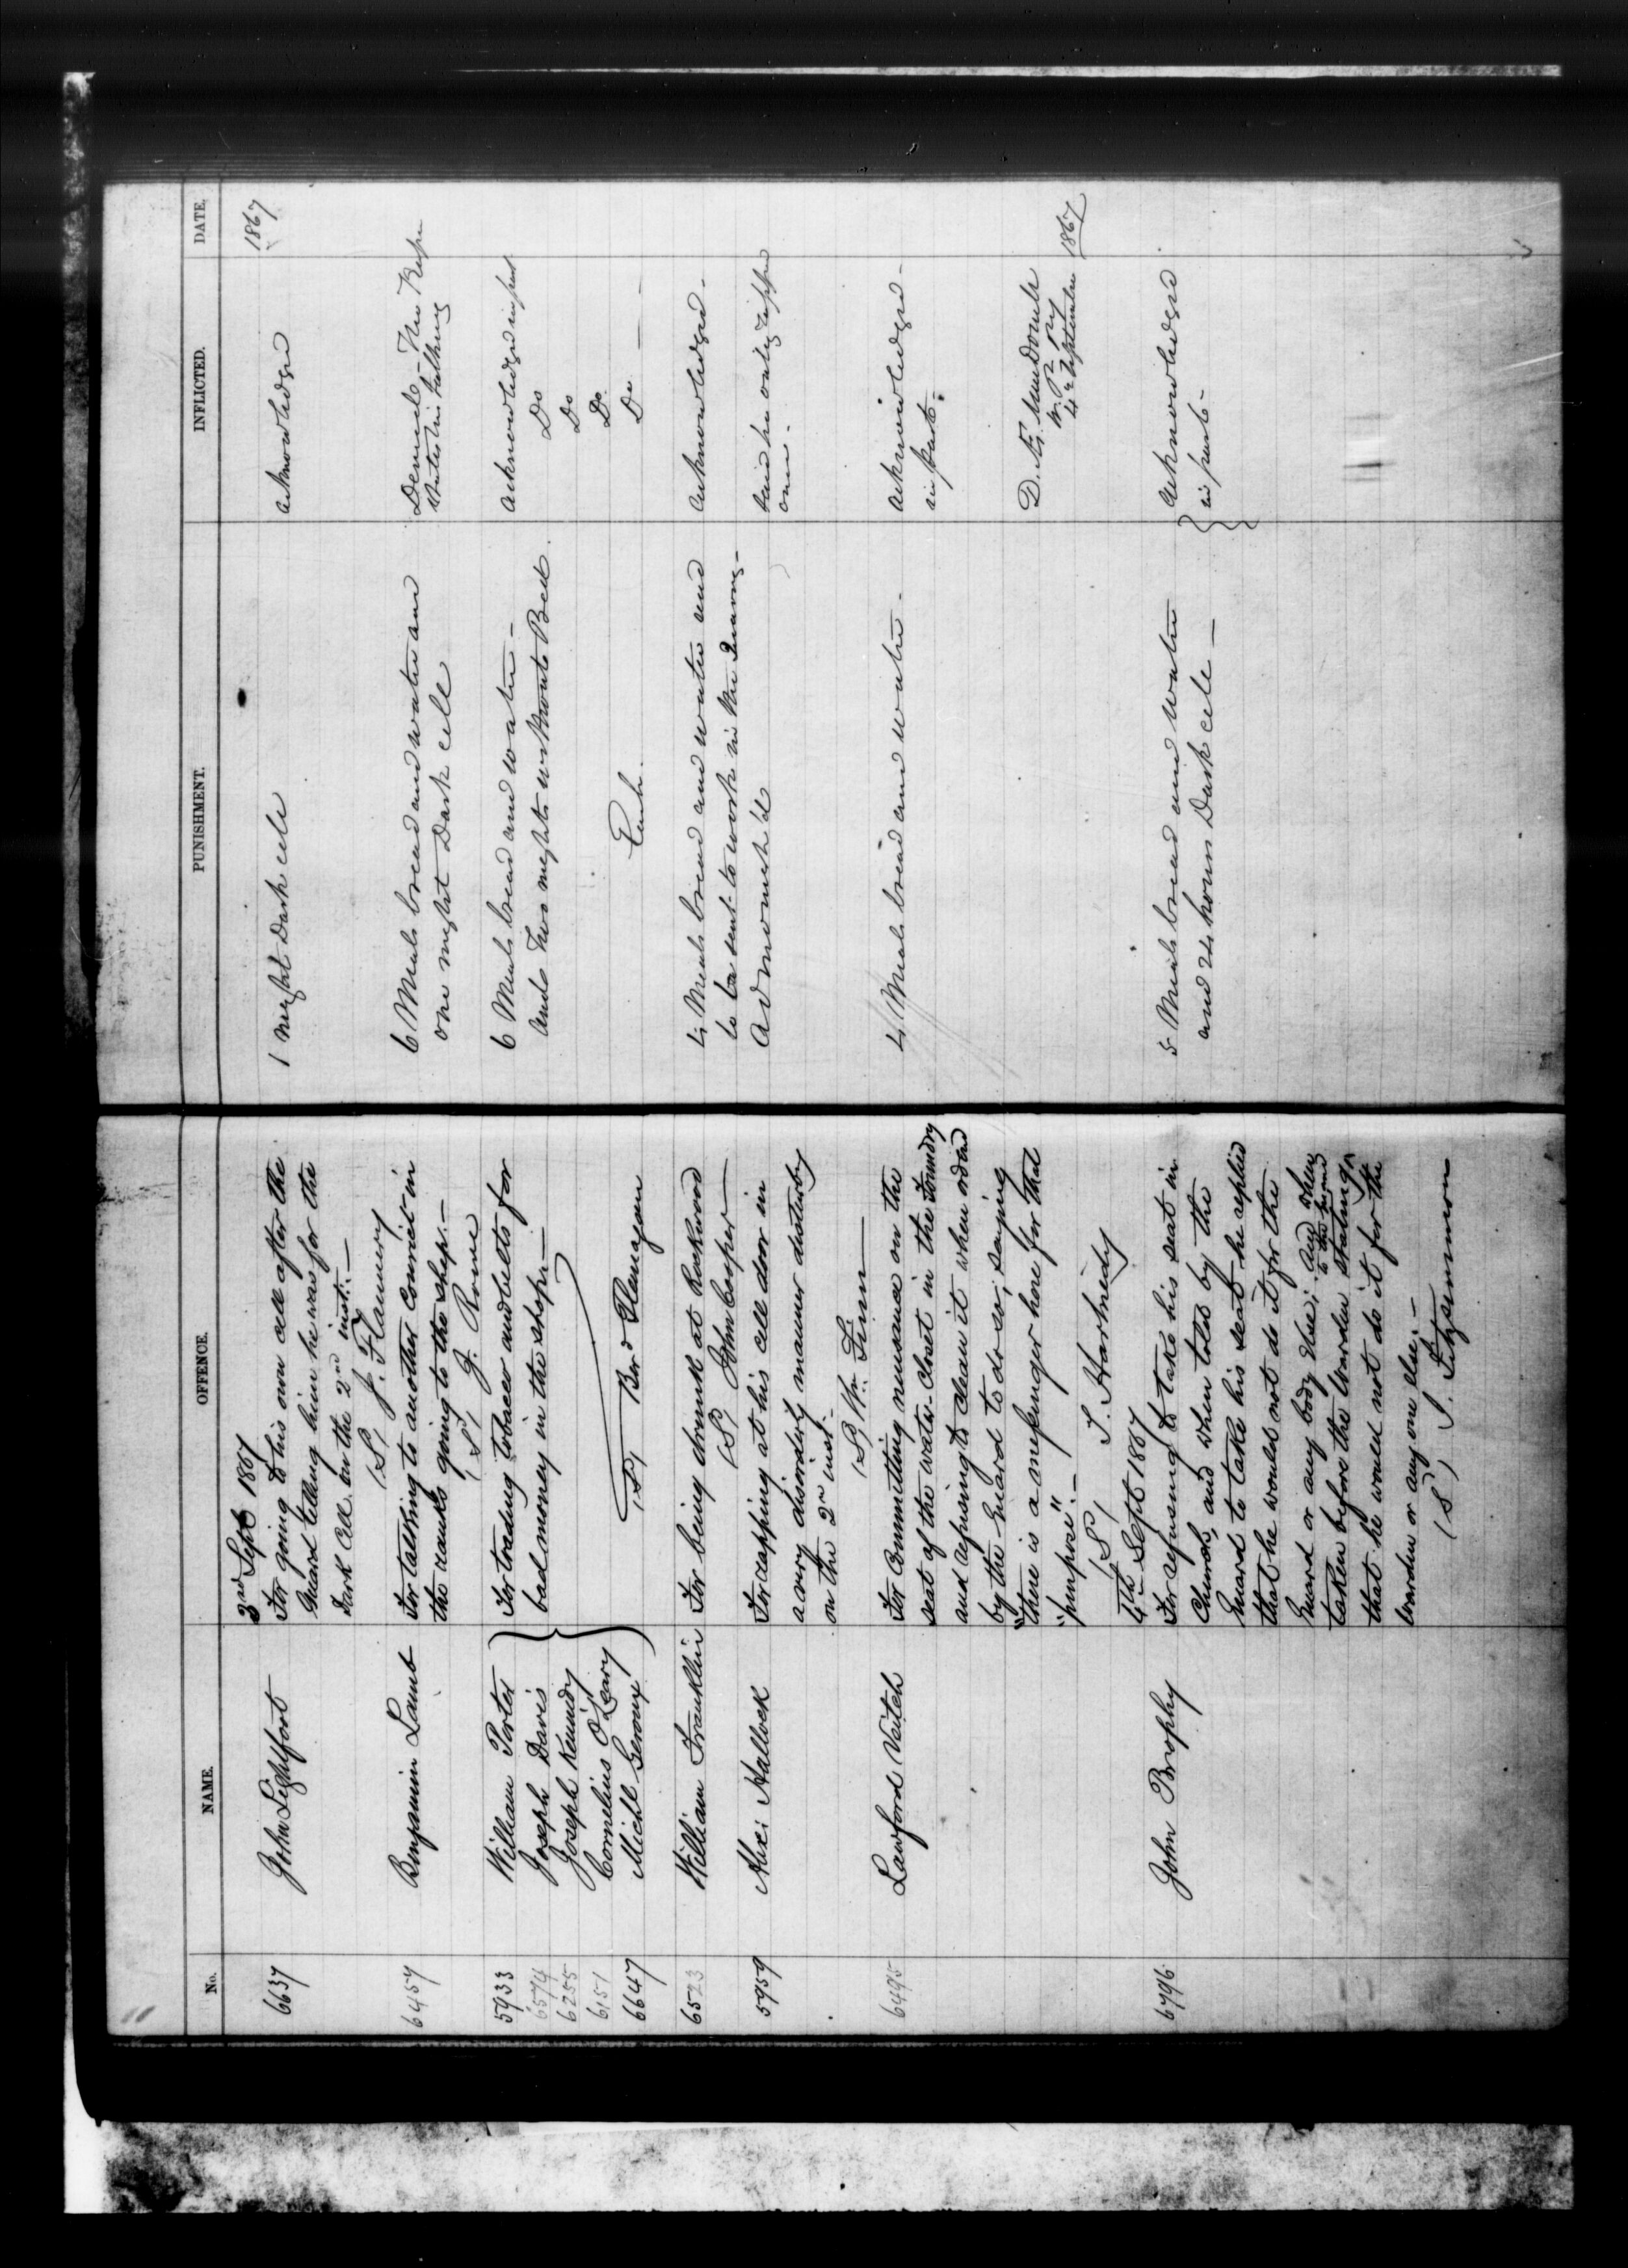 No. NAME. OFFENCE. PUNISHMENT. INFLICTED. DATE.
3rd Sept 1867 1867
6637 John Lightfoot For going to his own cell after the 1 night Dark cell acknowledged
Guard telling him he was for the
Dark Cell on the 2nd inst: —
(Sd) J. Flannery
6457 Benjamin Lamb For talking to another Convict in 6 Meals bread and water and Denied – The
the ranks going to the shop. — one night Dark cell talking
(Sd) J. Rowe
5933 William Porter For trading tobacco and belts for 6 Meals bread and water – acknowledged in part
6574 Joseph Davis bad money in the shops — and Two nights without Bed. Do
6255 Joseph Kennedy Do
6151 Cornelius O'Leary Each. Do
6647 Michl Geroux (Sd) Bd Flanagan Do —
6523 William Franklin For being drunk at Rockwood 4 Meals bread and water and acknowledged –
(Sd) John Cooper — to be sent to work in the Quarry –
5959 Alex: Hallock For rapping at his cell door in Admonish'd said he only rapped
a very disorderly manner yesterday once –
on the 2nd inst. –
(Sd) Wm Finn —
6495 Lawford Veitch For Committing nuisance on the 4 Meals bread and water – acknowledged –
seat of the water-closet in the Foundry in part –
and refusing to clean it when ordered
by the Guard to do so; saying
"there is a messenger here for that D. Æ. MacDonell
"purpose". — W. P. Py
(Sd) T. Hartnedy 4th September 1867
4th Sept 1867
6796 John Brophy For refusing to take his seat in 5 Meals bread and water acknowledged
Church, and when told by the and 24 hours Dark cell — in part –
Guard to take his seat he replied
that he would not do it for the
Guard or any body else; And when
taken before the Warden stating
that he would not do it for the
Warden or any one else. —
(Sd) J. Fitzsimmons